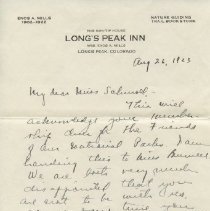 ENOS A. MILLS
1902-1922
THE RUSTIC HOUSE
LONG'S PEAK INN
MRS. ENOS A. MILLS
LONGS PEAK, COLORADO
NATURE GUIDING
TRAIL BOOK STORE
Aug 26, 1923
My dear Miss
This will
acknowledge your member-
ship dues for the Friends
of Our National Parks. I am
handing this to Miss
We are both very much
disappointed that you
are not to be with us